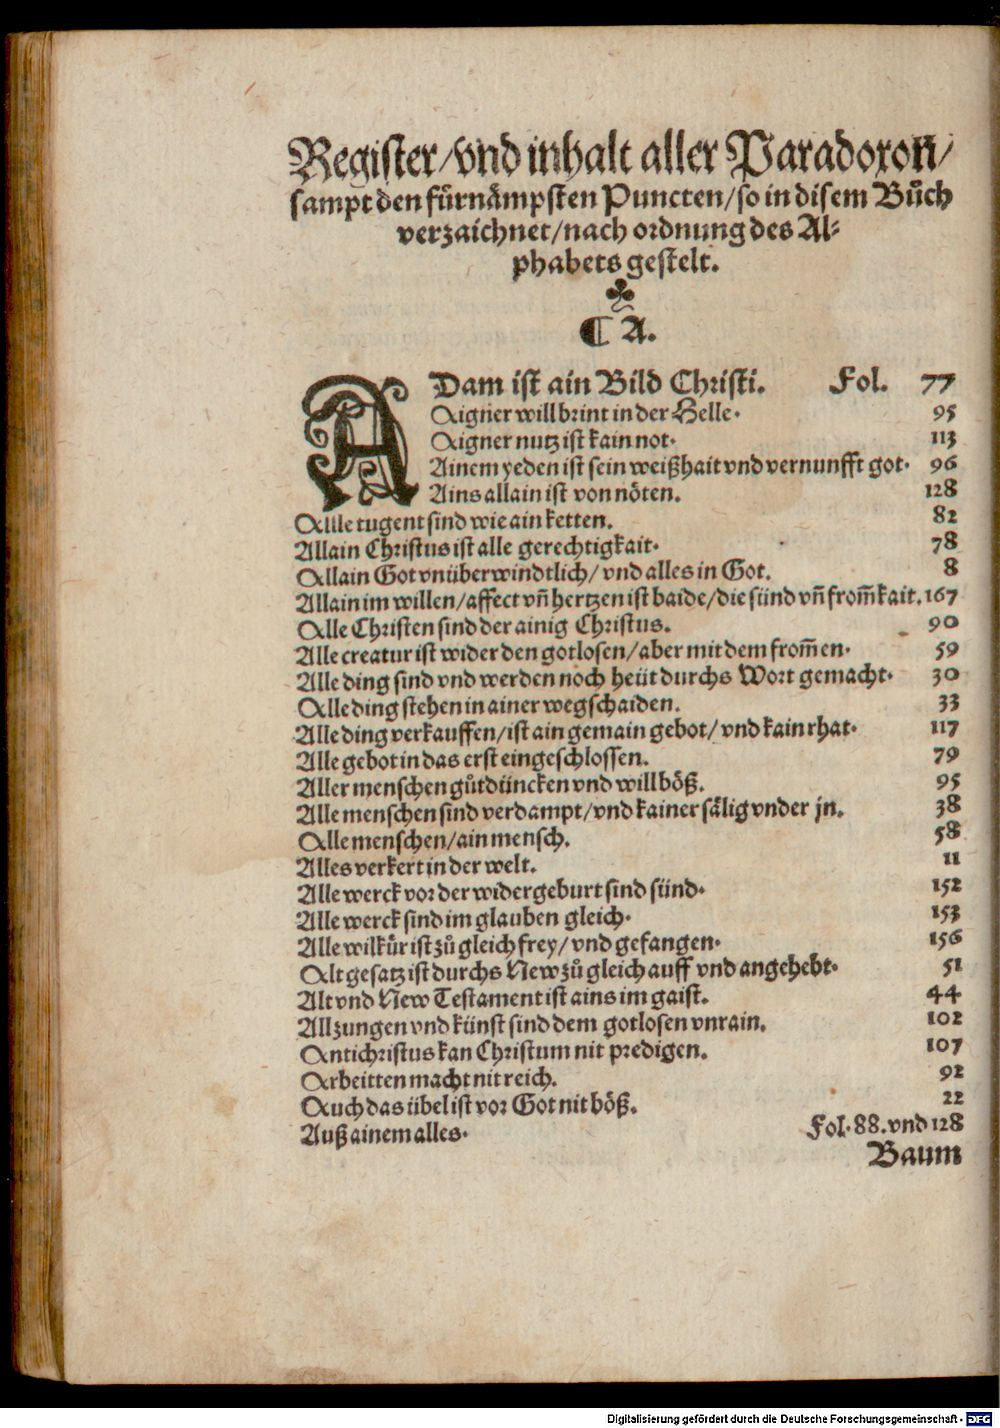 Register/vnd inhalt aller Paradoxon̄/
sampt den fürnämpsten Puncten/so in disem Bůch
verzaichnet/nach ordnung des Al⸗
phabets gestelt.
¶ A.
ADam ist ain Bild Christi. Fol. 77
Aigner will brint in der Helle. 95
Aigner nutz ist kain not. 113
Ainem yeden ist sein weißhait vnd vernunfft got. 96
Ains allain ist von nöten. 128
Allle tugent sind wie ain ketten. 82
Allain Christus ist alle gerechtigkait. 78
Allain Got vnüberwindtlich/ vnd alles in Got. 8
Allain im willen/affect vn̄ hertzen ist baide/die sünd vn̄ from̄kait. 167
Alle Christen sind der ainig Christus. 90
Alle creatur ist wider den gotlosen/aber mit dem from̄en. 59
Alle ding sind vnd werden noch heüt durchs Wort gemacht. 30
Alle ding stehen in ainer wegschaiden. 33
Alle ding verkauffen/ist ain gemain gebot/ vnd kain rhat. 117
Alle gebot in das erst eingeschlossen. 79
Aller menschen gůtdüncken vnd will böß. 95
Alle menschen sind verdampt/vnd kainer sälig vnder jn. 38
Alle menschen/ain mensch. 58
Alles verkert in der welt. 11
Alle werck vor der widergeburt sind sünd. 152
Alle werck sind im glauben gleich. 153
Alle wilkür ist zů gleich frey/ vnd gefangen. 156
Alt gesatz ist durchs New zů gleich auff vnd angehebt. 51
Alt vnd New Testament ist ains im gaist. 44
All zungen vnd künst sind dem gotlosen vnrain. 102
Antichristus kan Christum nit predigen. 107
Arbeitten macht nit reich. 92
Auch das übel ist vor Got nit böß. 22
Auß ainem alles. Fol. 88. vnd 128
Baum
Digitalisierung gefördert durch die Deutsche Forschungsgemeinschaft - DFG